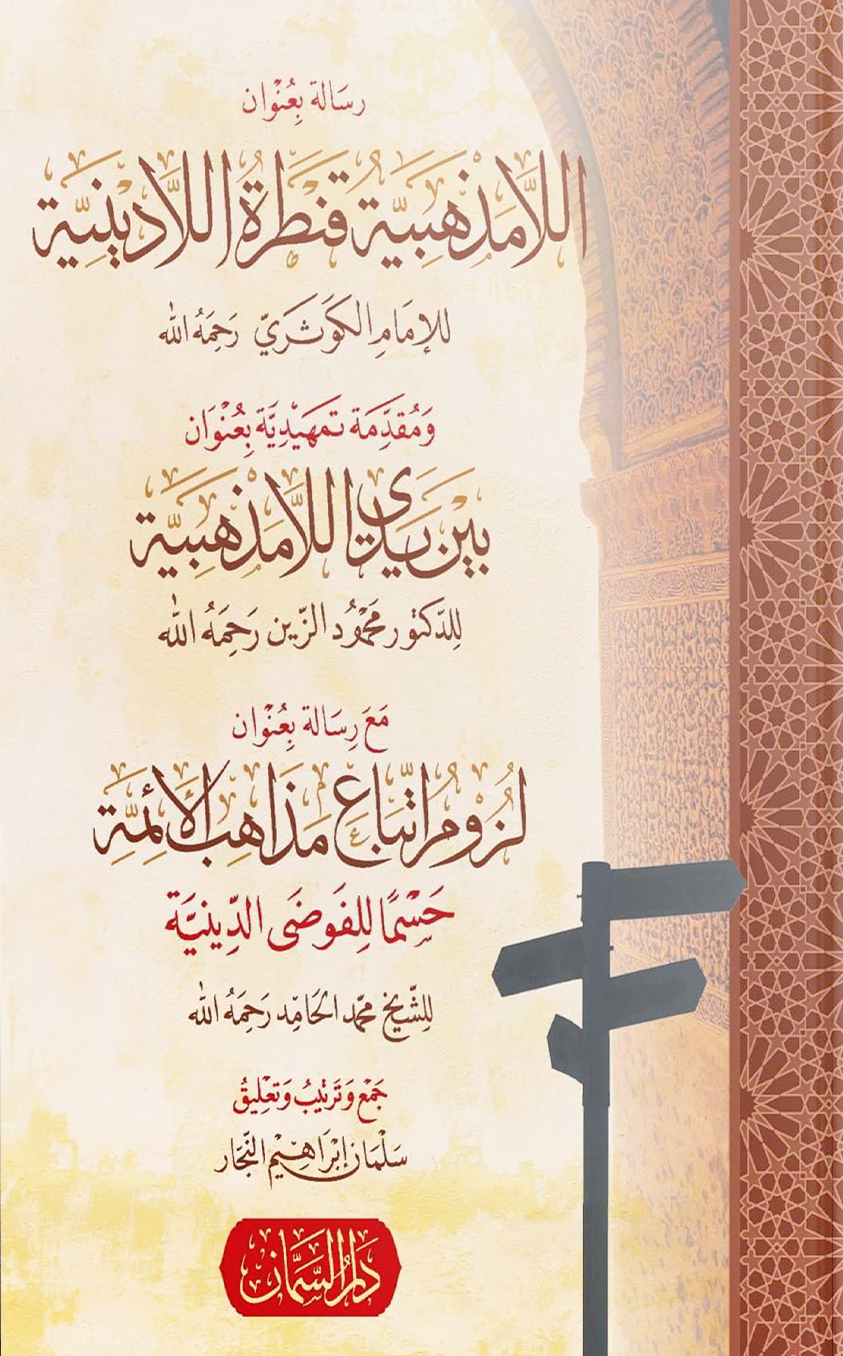 رسَالة بِعُنْوَان
اللَّامَذْهَبِيَّةُ قَنْطَرَةُ اللَّادِيْنِيَّة
للإمَامِ الكَوْثَرَيّ رَحِمَهُ الله
وَمُقَدِّمَة تَمهَيْدِيَّة بِعُنْوَان
بَيْن يَدَيْ اللَّامَذْهَبِيَّة
لِلدّكتور مَحْمُود الزّين رَحِمَهُ الله
مَعَ رِسَالة بِعُنْوَان
لُزُومُ اتِّبَاعِ مَذَاهِبِ الأَئِمَّةِ
حَسْمًا لِلفَوضَى الدِّينيَّة
لِلشّيخ محمّد الحَامِد رَحِمَهُ الله
جَمْع وَتَرتيبُ وَتَعْلِيقُ
سَلْمَان إبْرَاهِيْم النّجّار
دَارُ السَّمَّان